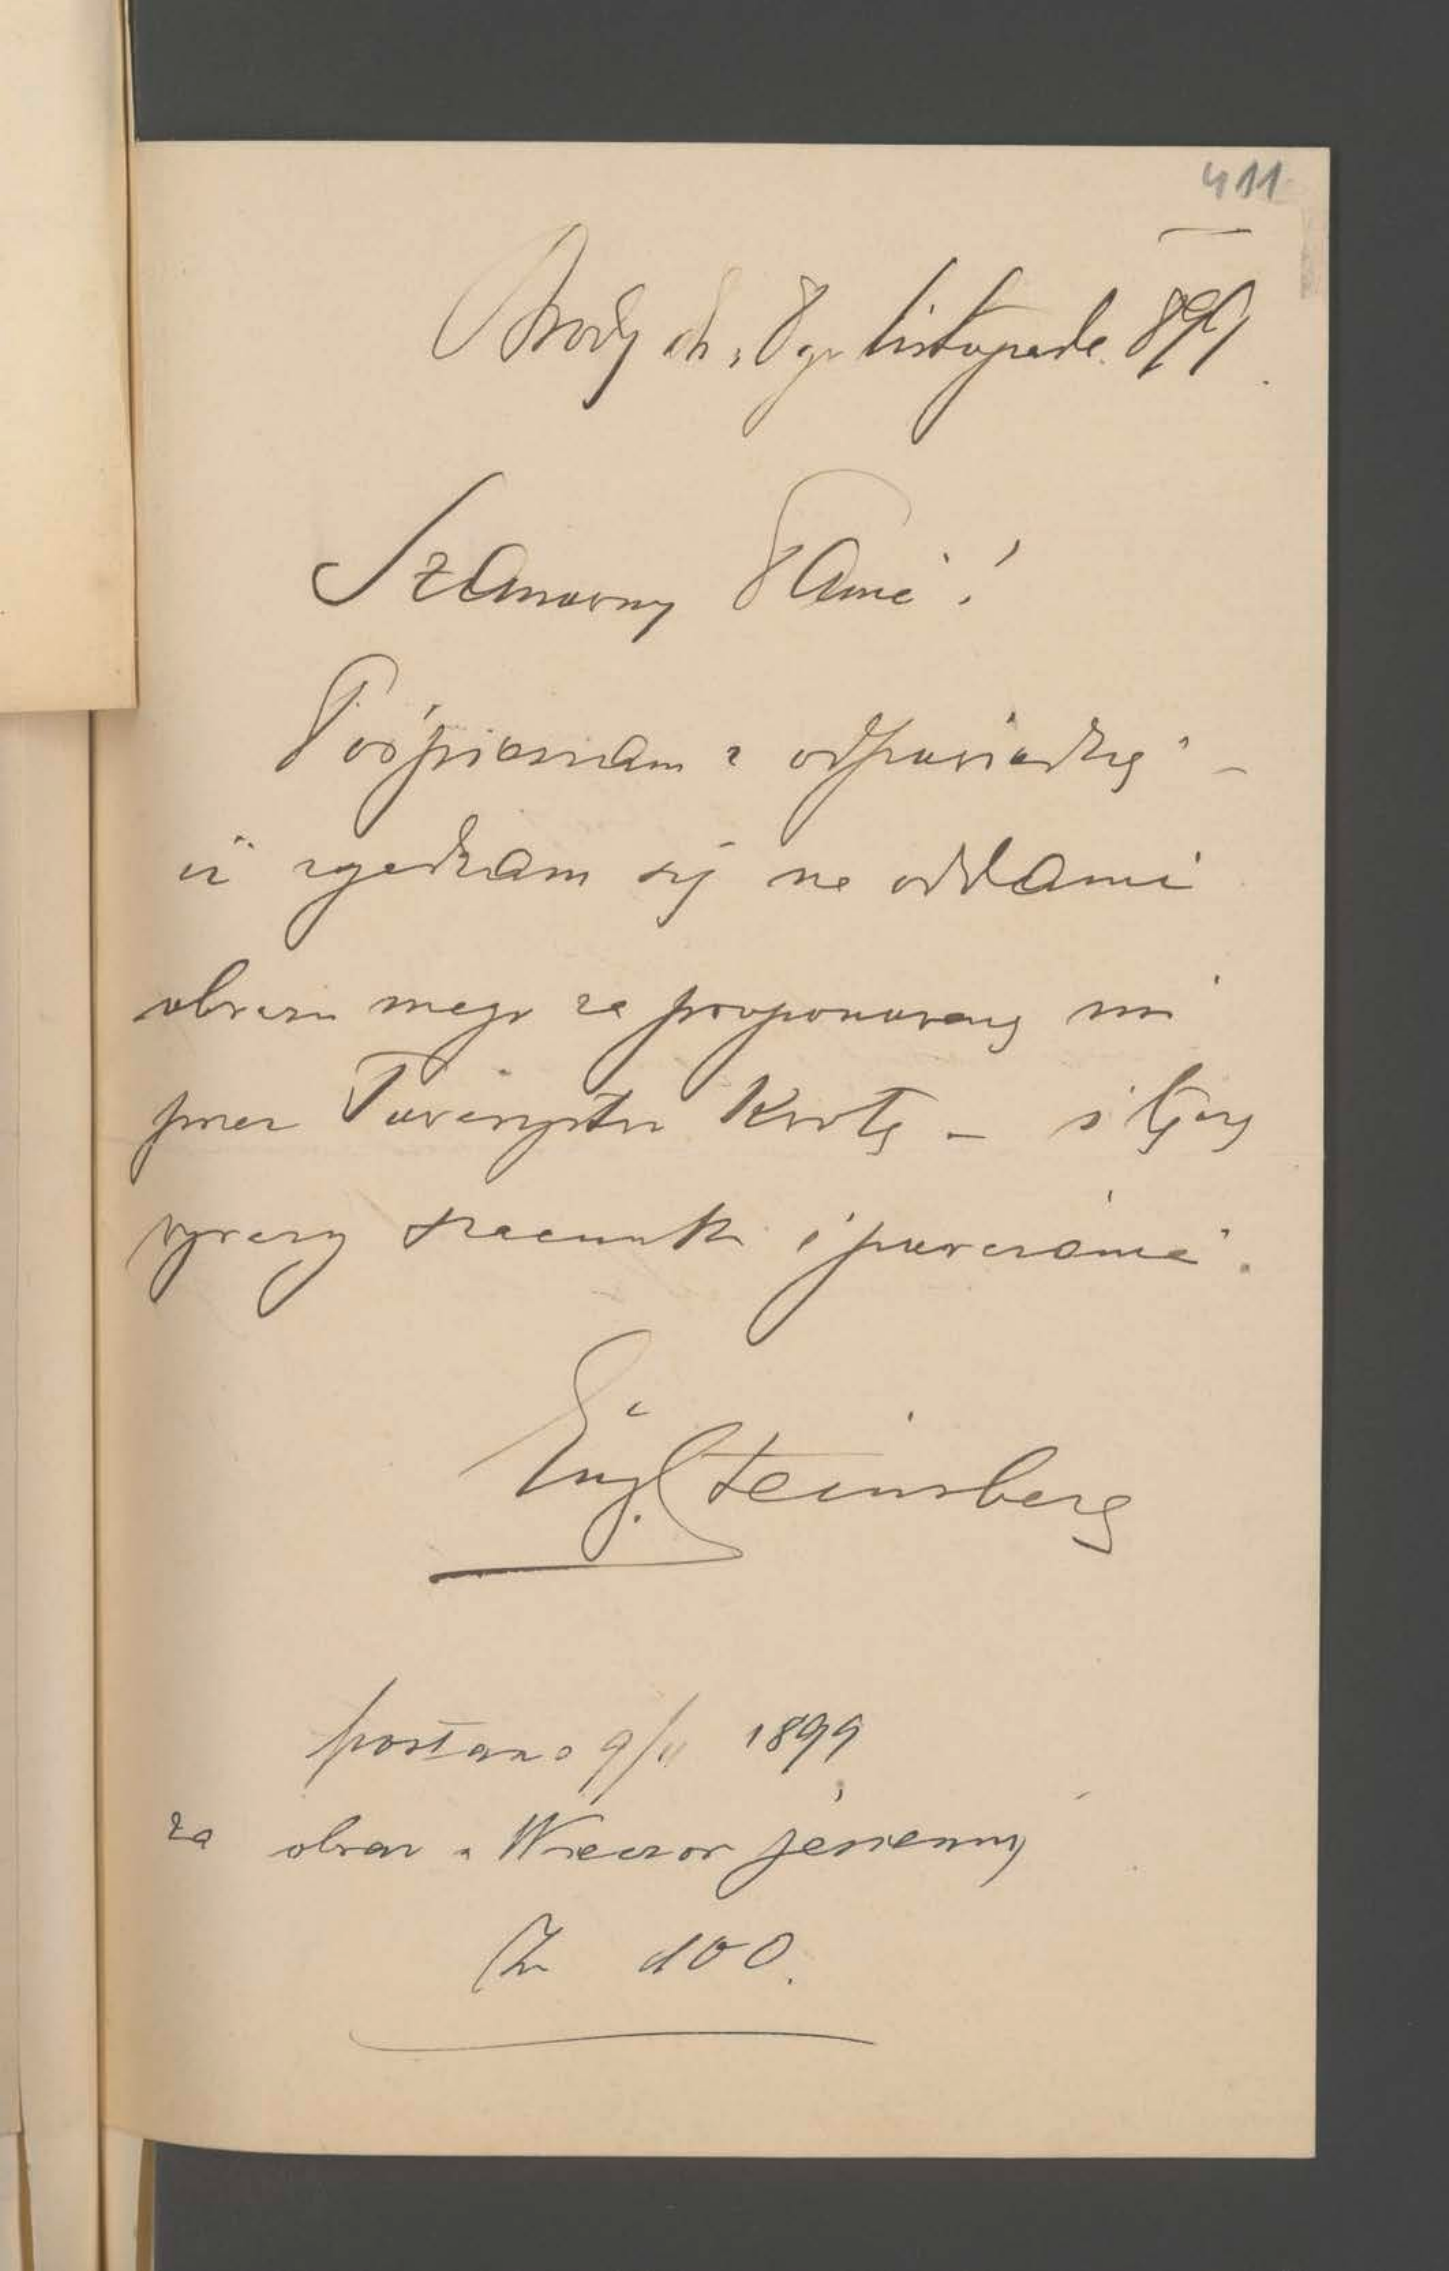 411
Brody dn. 8go listopada 899.
Szanowny Panie!
Pośpieszam z odpowiedzią –
iż zgadzam się na oddanie
obrazu mego za proponowaną mi
przez Towarzystwo kwotę – i łączę
wyrazy szacunku i poważania.
Eug. Steinsberg
posłano 9/11 1899
za obraz „Wieczór jesienny
100.